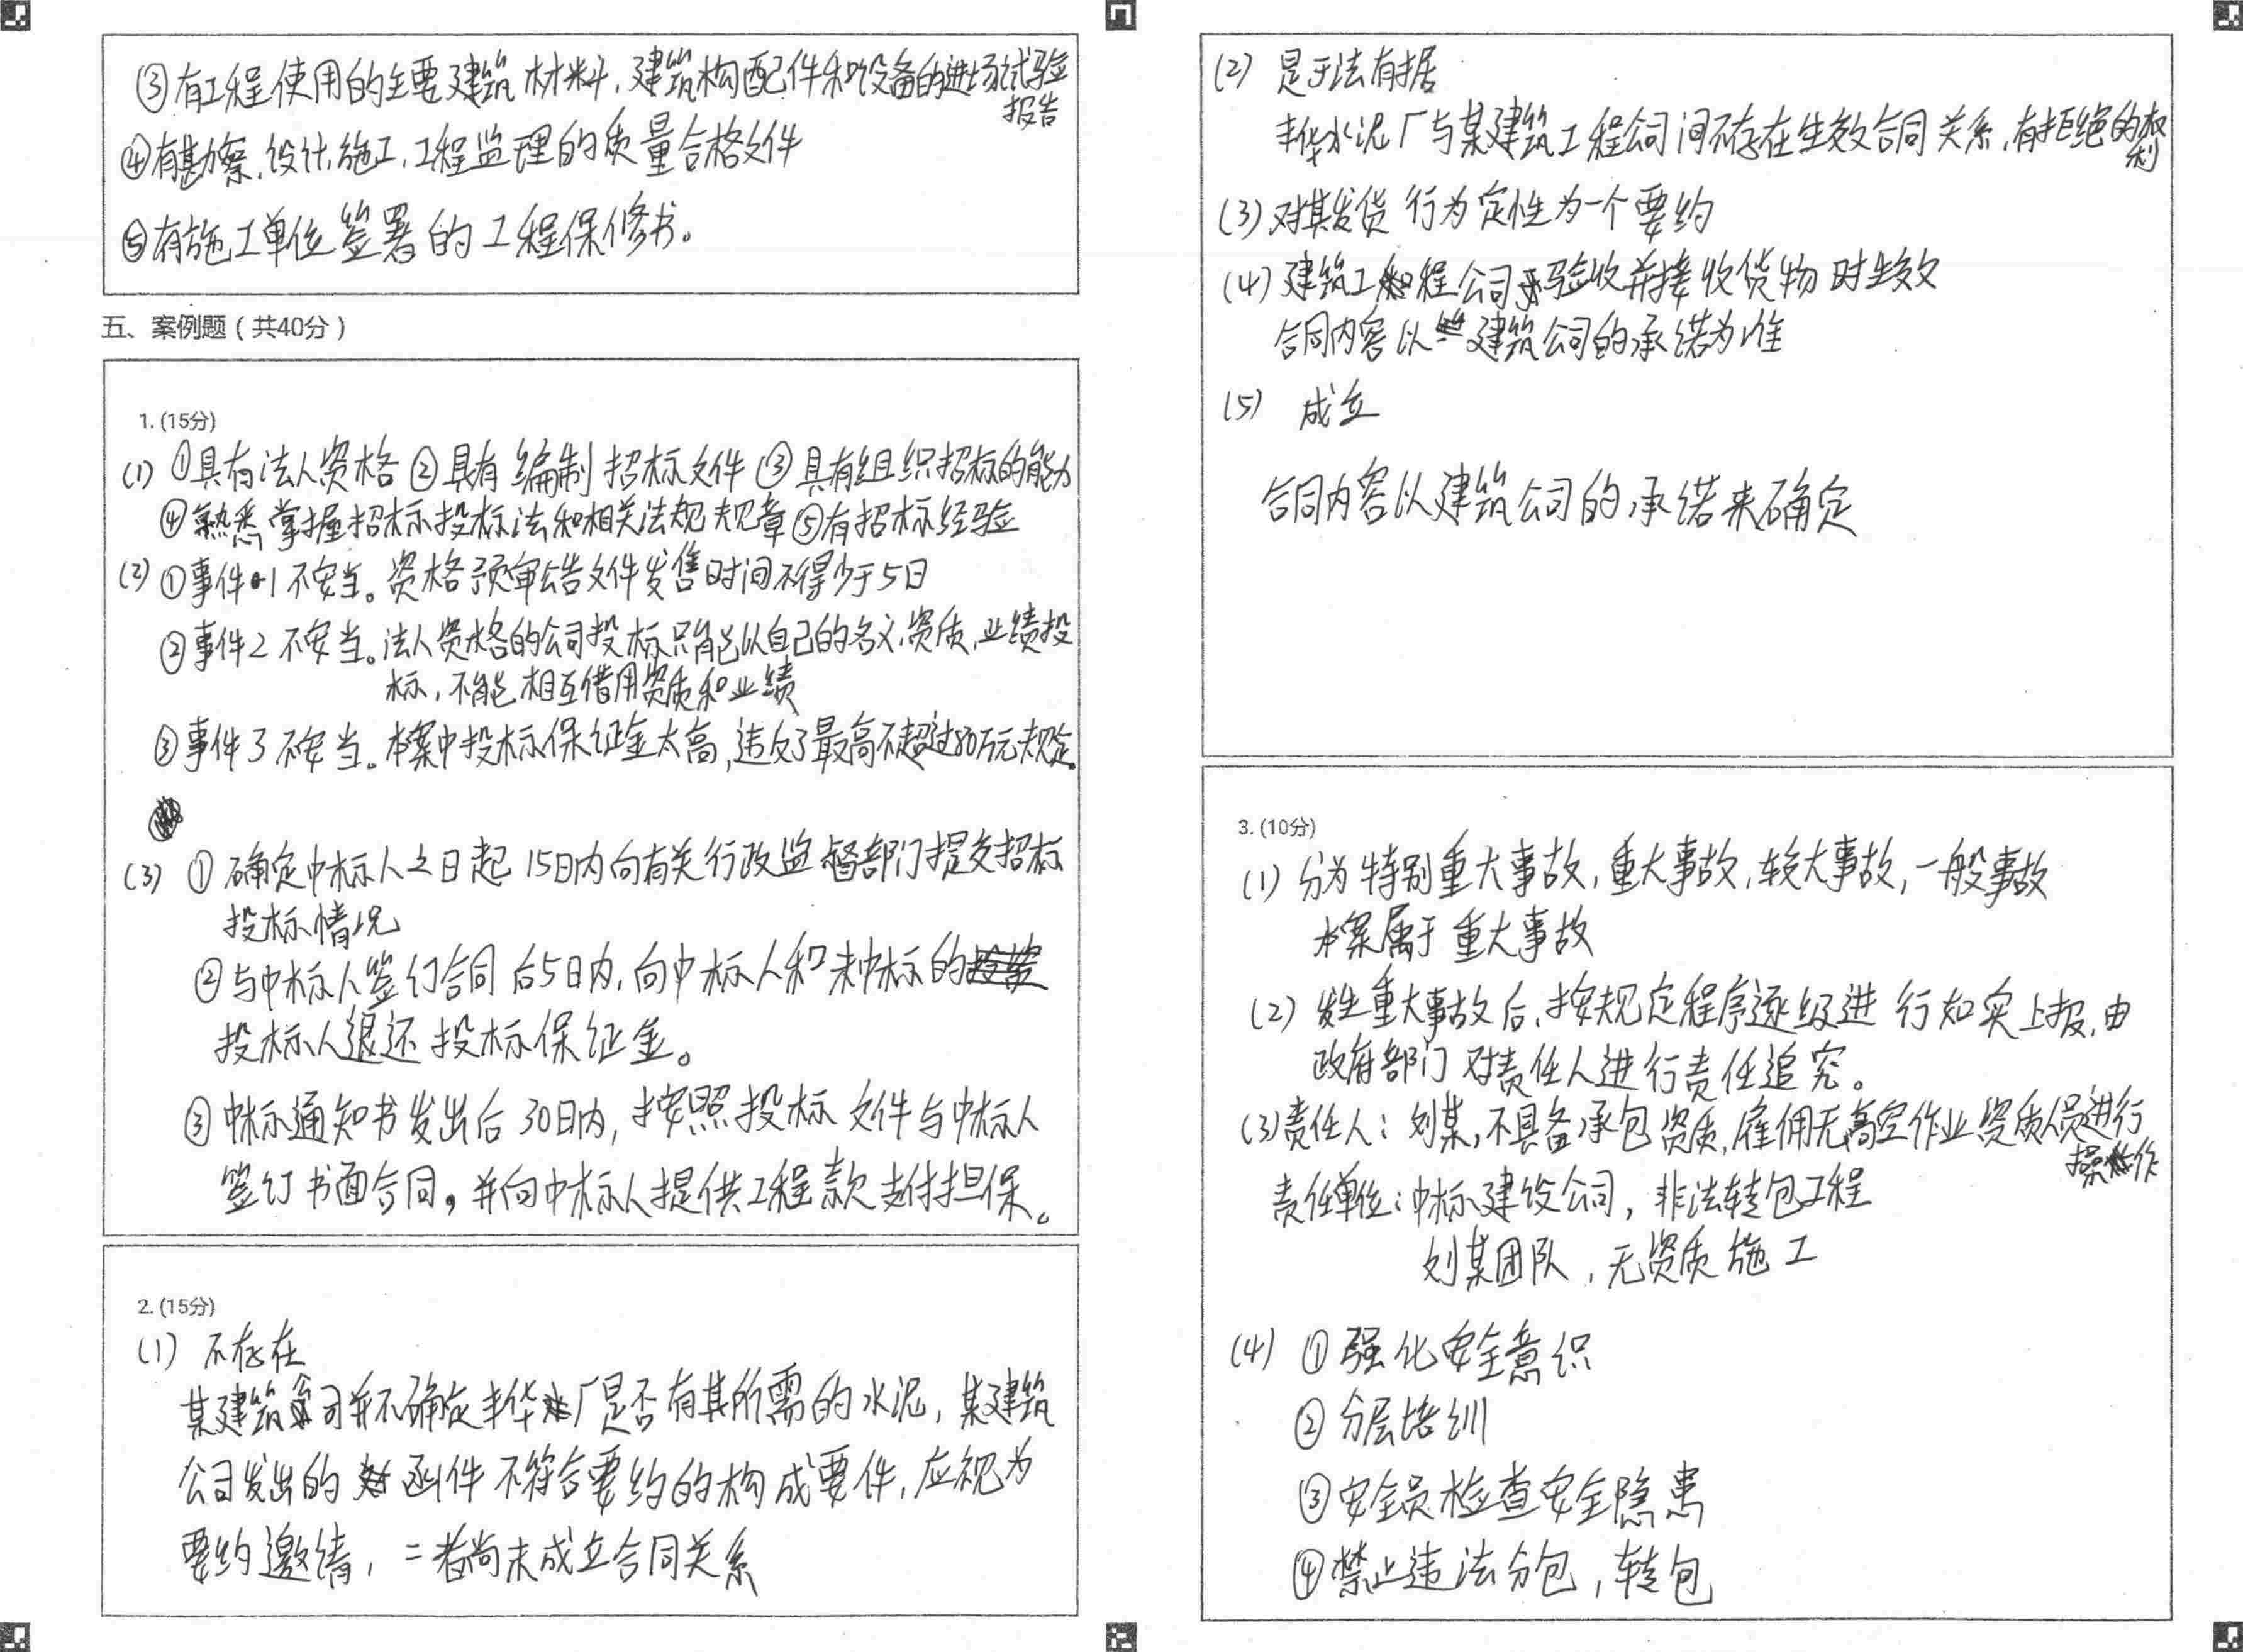 ③有工程使用的主要建筑材料,建筑构配件和设备的进场试验
报告
④有勘察,设计,施工,工程监理的质量合格文件
⑤有施工单位签署的工程保修书。
五、案例题(共40分)
1.(15分)
(1) ①具有法人资格 ②具有编制招标文件 ③具有组织招标的能力
④熟悉掌握招标投标法和相关法规规章⑤有招标经验
(2) ①事件1不妥当。资格预审公告文件发售时间不得少于5日
②事件2不妥当。法人资格的公司投标只能以自己的名义,资质,业绩投
标,不能相互借用资质和业绩
③事件3不妥当。本案中投标保证金太高,违反了最高不超过80万元规定。
(3) ①确定中标人之日起15日内向有关行政监督部门提交招标
投标情况
②与中标人签订合同后5日内,向中标人和未中标的
投标人退还投标保证金。
③中标通知书发出后30日内,按照投标文件与中标人
签订书面合同,并向中标人提供工程款支付担保。
2.(15分)
(1) 不存在
某建筑公司并不确定丰华厂是否有其所需的水泥,某建筑
公司发出的函件不符合要约的构成要件,应视为
要约邀请,二者尚未成立合同关系
(2) 是于法有据
丰华水泥厂与某建筑工程公司间不存在生效合同关系,有拒绝的权
利
(3)对其发货行为定性为一个要约
(4)建筑工程公司验收并接收货物时生效
合同内容以建筑公司的承诺为准
(5) 成立
合同内容以建筑公司的承诺来确定
3.(10分)
(1) 分为特别重大事故,重大事故,较大事故,一般事故
本案属于重大事故
(2) 发生重大事故后,按规定程序逐级进行如实上报,由
政府部门对责任人进行责任追究。
(3)责任人:刘某,不具备承包资质,雇佣无高空作业资质人员进行
操作
责任单位:中标建设公司,非法转包工程
刘某团队,无资质施工
(4) ①强化安全意识
②分层培训
③安全员检查安全隐患
④禁止违法分包,转包